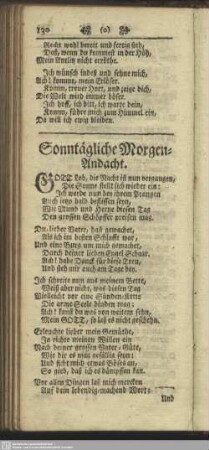 130 (o)
Recht wohl bereit und fertig steh,
Daß, wenn du kommest in der Höh,
Mein Antlitz nicht erröthe.
Ich wünsch indeß und sehne mich,
Ach! komme, mein Erlöser.
Komm, treuer Hort, und zeige dich,
Die Welt wird immer böser.
Ich hoff, ich bitt, ich warte dein,
Komm, führe mich zum Himmel ein,
Da will ich ewig bleiben.
Sonntägliche Morgen-
Andacht.
GOTT Lob, die Nacht ist nun vergangen,
Die Sonne stellt sich wieder ein:
Ich werde nun bey ihrem Prangen
Auch itzo bald beflissen seyn,
Wie Mund und Hertze diesen Tag
Den grossen Schöpffer preisen mag.
Du, lieber Vater, hast gewachet,
Als ich im hohen Schlaffe war,
Und eine Burg um mich gemachet,
Durch deiner lieben Engel Schaar.
Ach! habe Danck für diese Treu,
Und steh mir auch am Tage bey.
Ich schreite nun aus meinem Bette,
Weiß aber nicht, was diesen Tag
Vielleicht vor eine Sünden-Kette
Die arme Seele binden mag:
Ach! kanst du was von weiten sehn,
Mein GOTT, so laß es nicht geschehn.
Erwache lieber mein Gemüthe,
Ja richte meinen Willen ein
Nach deiner grossen Vater-Güte,
Wie dir es mag gefällig seyn:
Und ficht mich etwas Böses an,
So gieb, daß ich es dämpffen kan.
Vor allen Dingen laß mich mercken
Auf dein lebendig-machend Wort;
Und